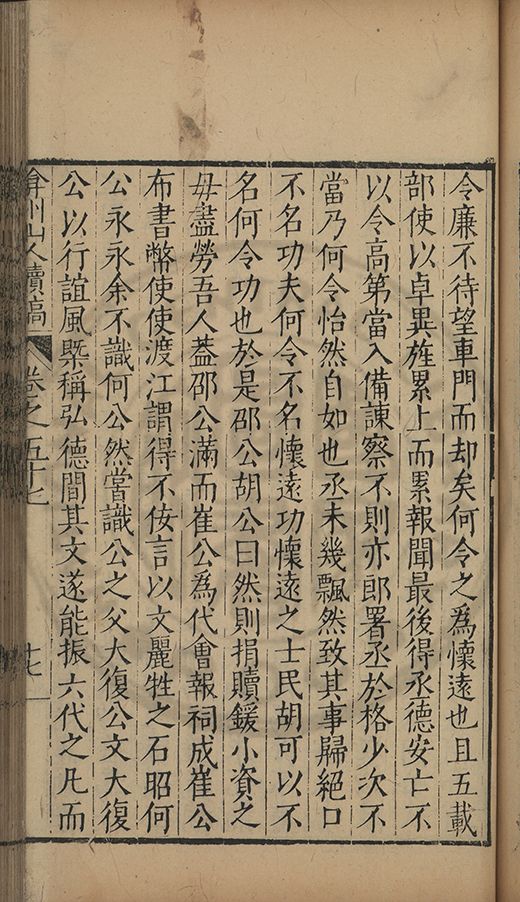 令廉不待望車門而却矣何令之為懷遠也且五載
部使以卓異旌累上而累報聞最後得丞德安亡不
以令高第當入備諫察不則亦郎署丞於格少次不
當乃何令怡然自如也丞未幾飄然致其事歸絕口
不名功夫何令不名懷遠功懷遠之士民胡可以不
名何令功也於是邵公胡公曰然則捐贖鍰小資之
毋盡勞吾人葢邵公滿而崔公為代會報祠成崔公
布書幣使使渡江謂得不侫言以文麗牲之石昭何
公永永余不識何公然嘗識公之父大復公文大復
公以行誼風槩稱弘德間其文遂能振六代之凡而
弇州山人續稿 卷之五十七 十七